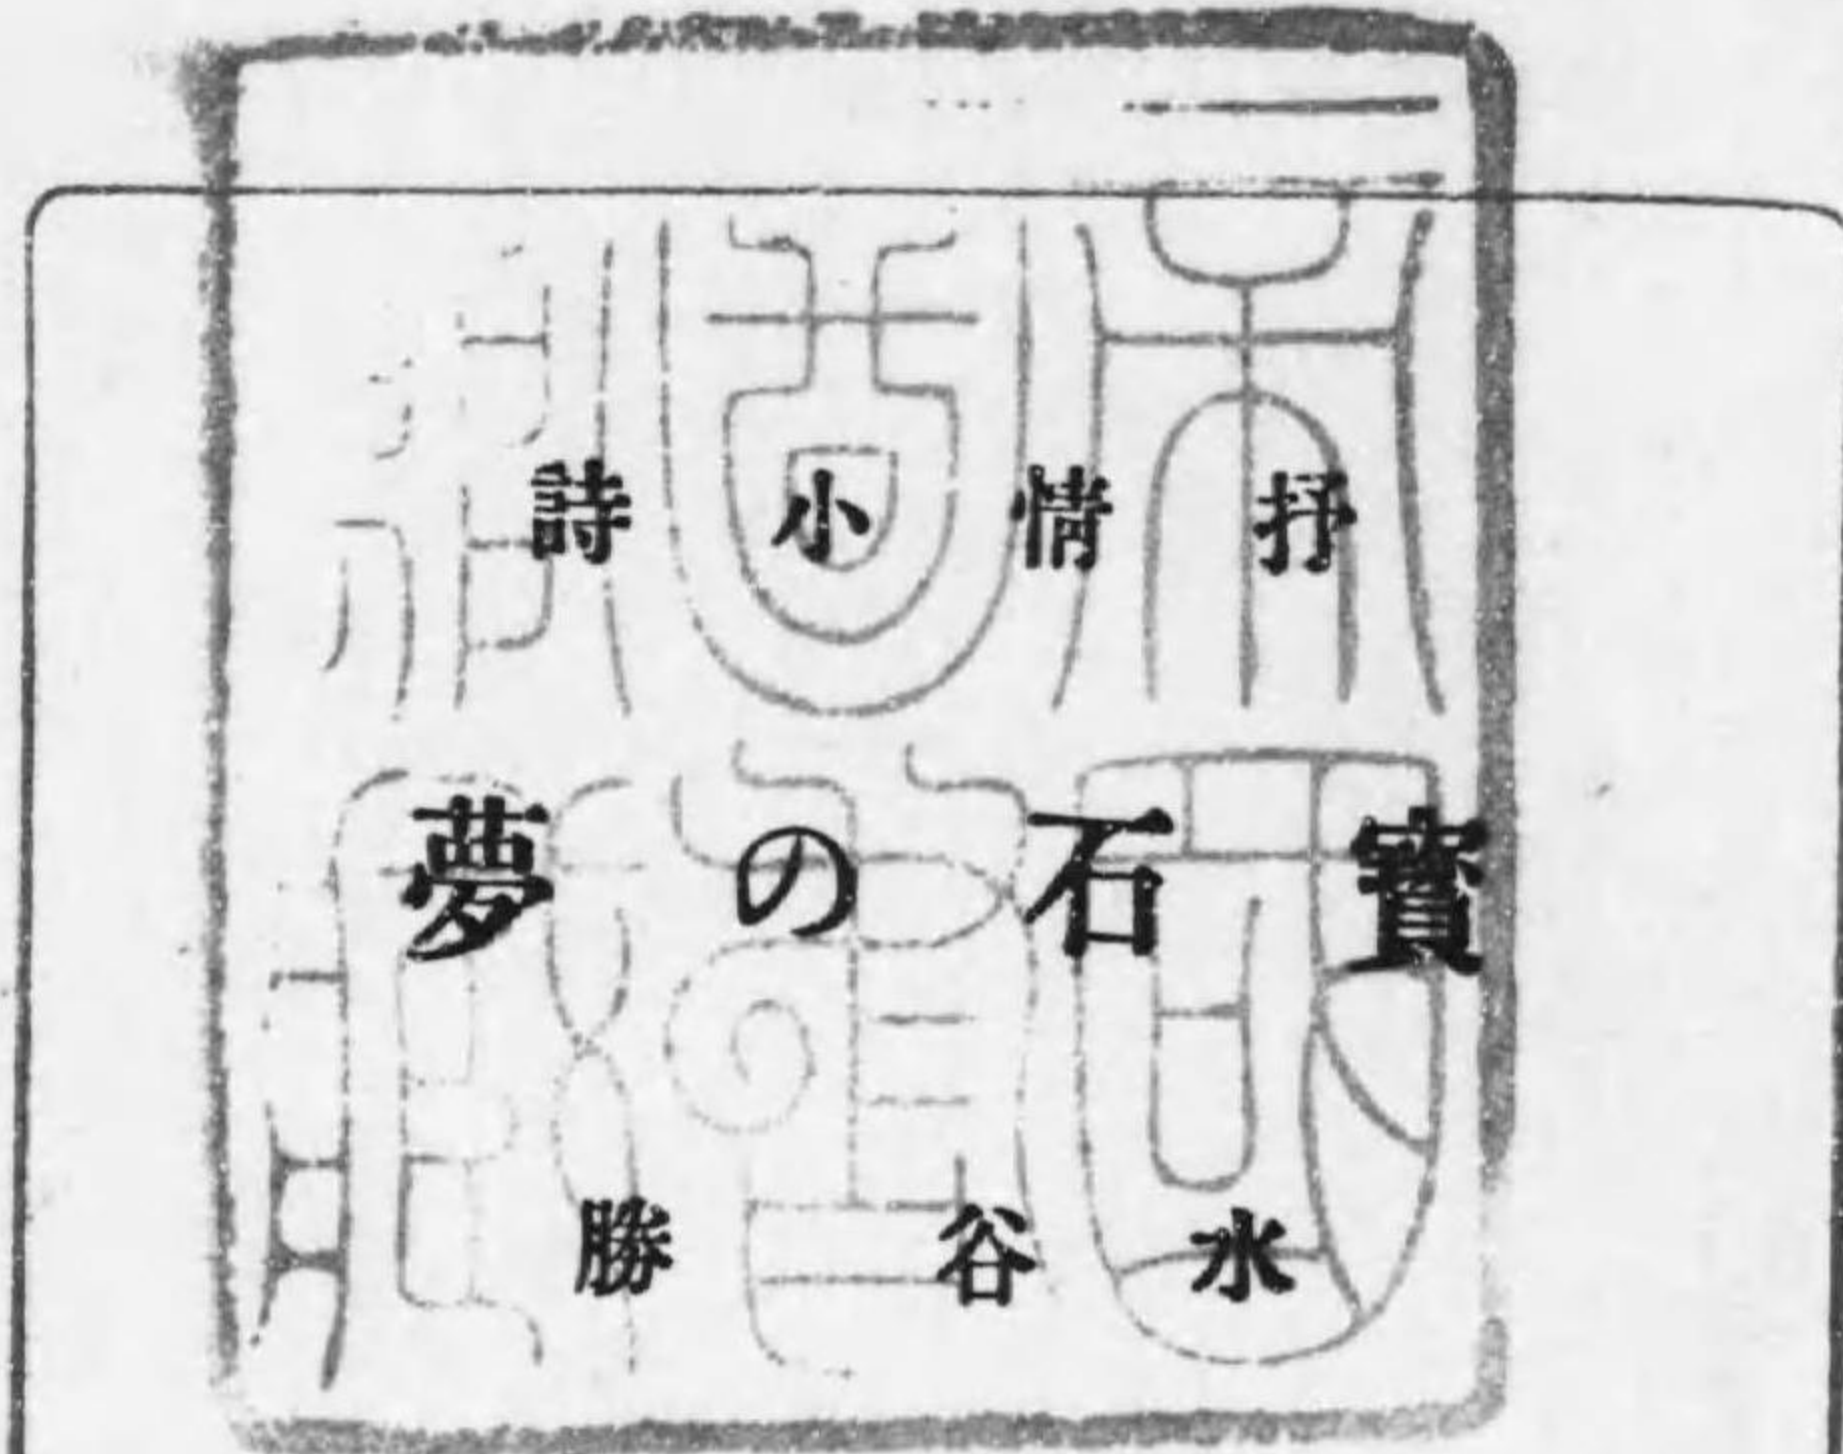 抒情小詩
寳石の夢
水谷勝